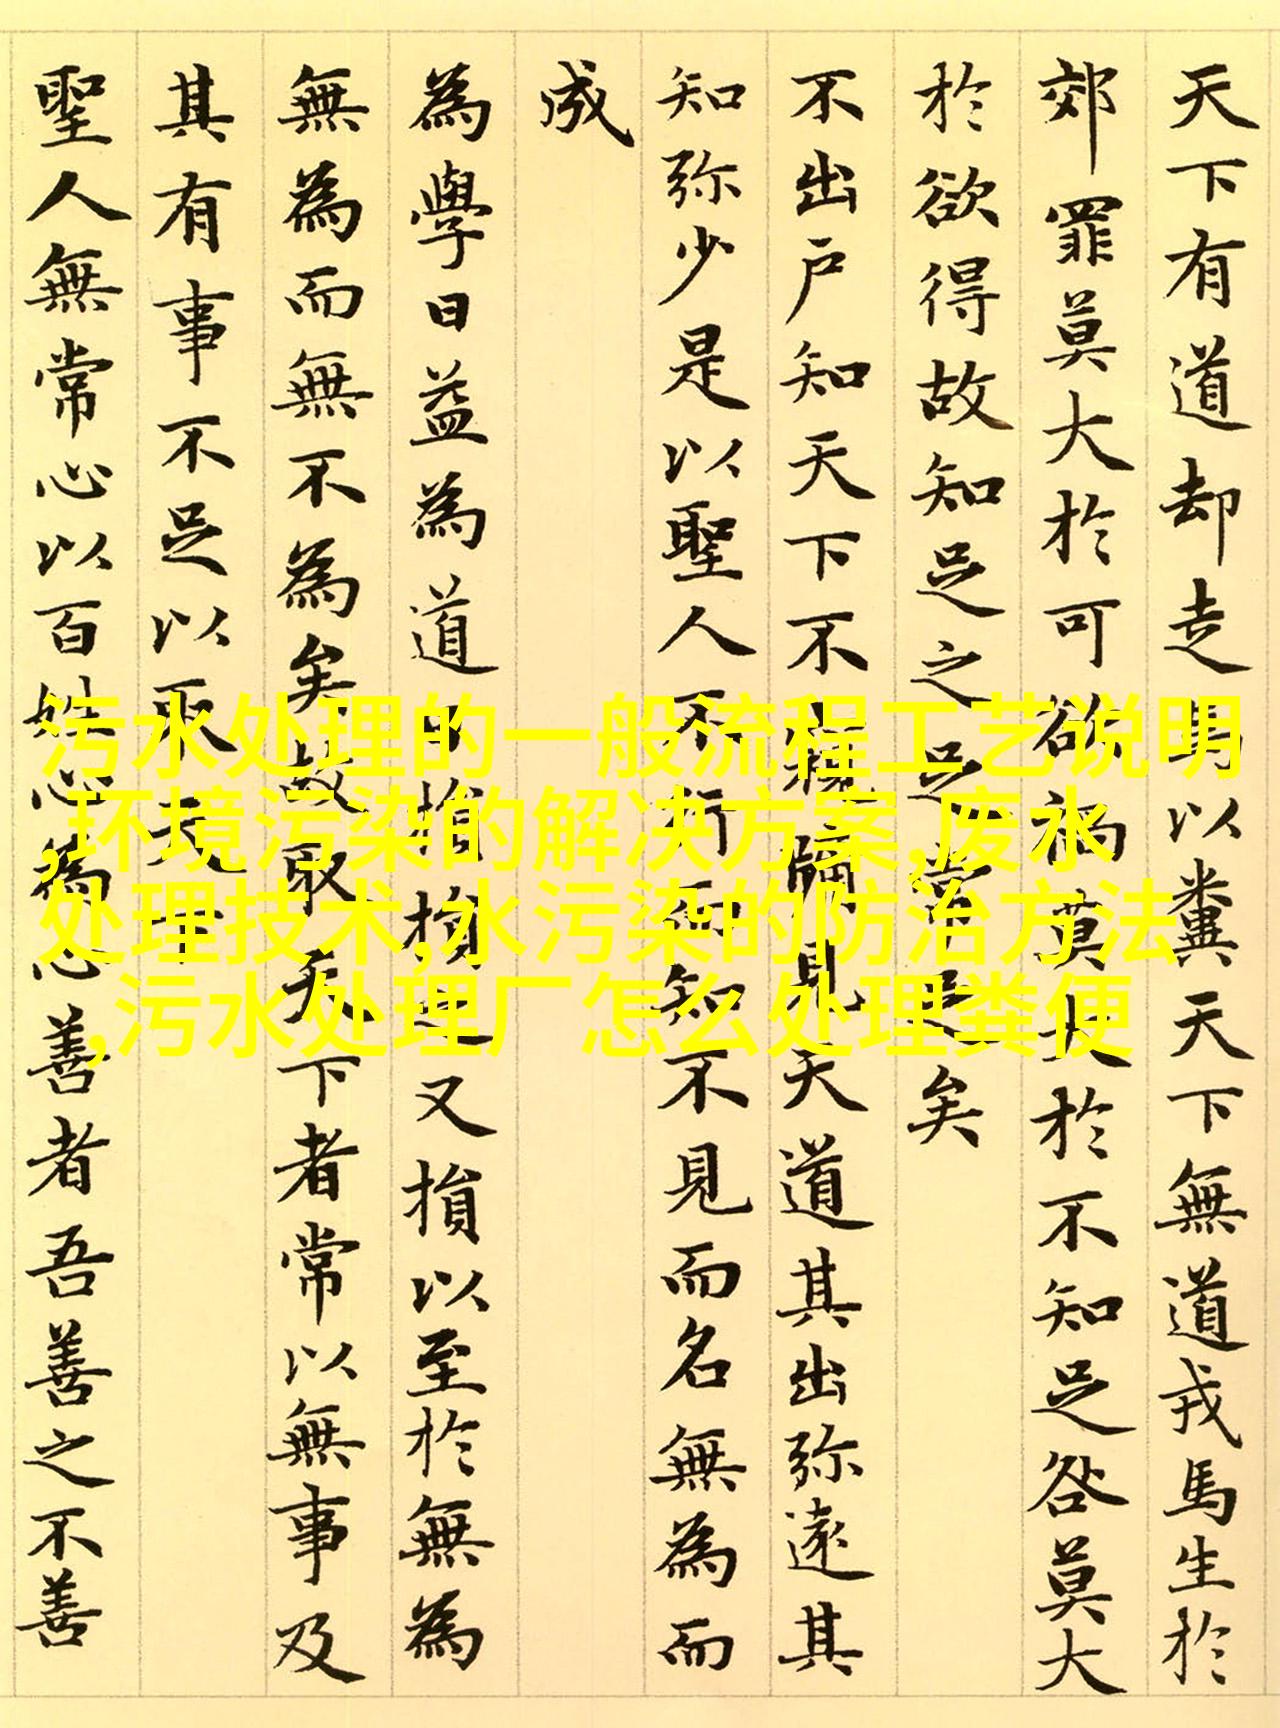 天下有道却走馬以糞天下無道戎馬生於
郊罪莫大於可欲禍莫大於不知足咎莫大
於欲得故知足之足常足矣
不出户知天下不窺牖見天道其出弥遠其
知弥少是以聖人不行而知不見而名無為而
成
為學日益為道日損損之又損以至於無為
無為而無不為矣故取天下者常以無事及
其有事不足以取天下
聖人無常心以百姓心為心善者吾善之不善
污水处理的一般流程工艺说明
,环境污染的解决方案,废水
处理技术,水污染的防治方法
,污水处理厂怎么处理粪便